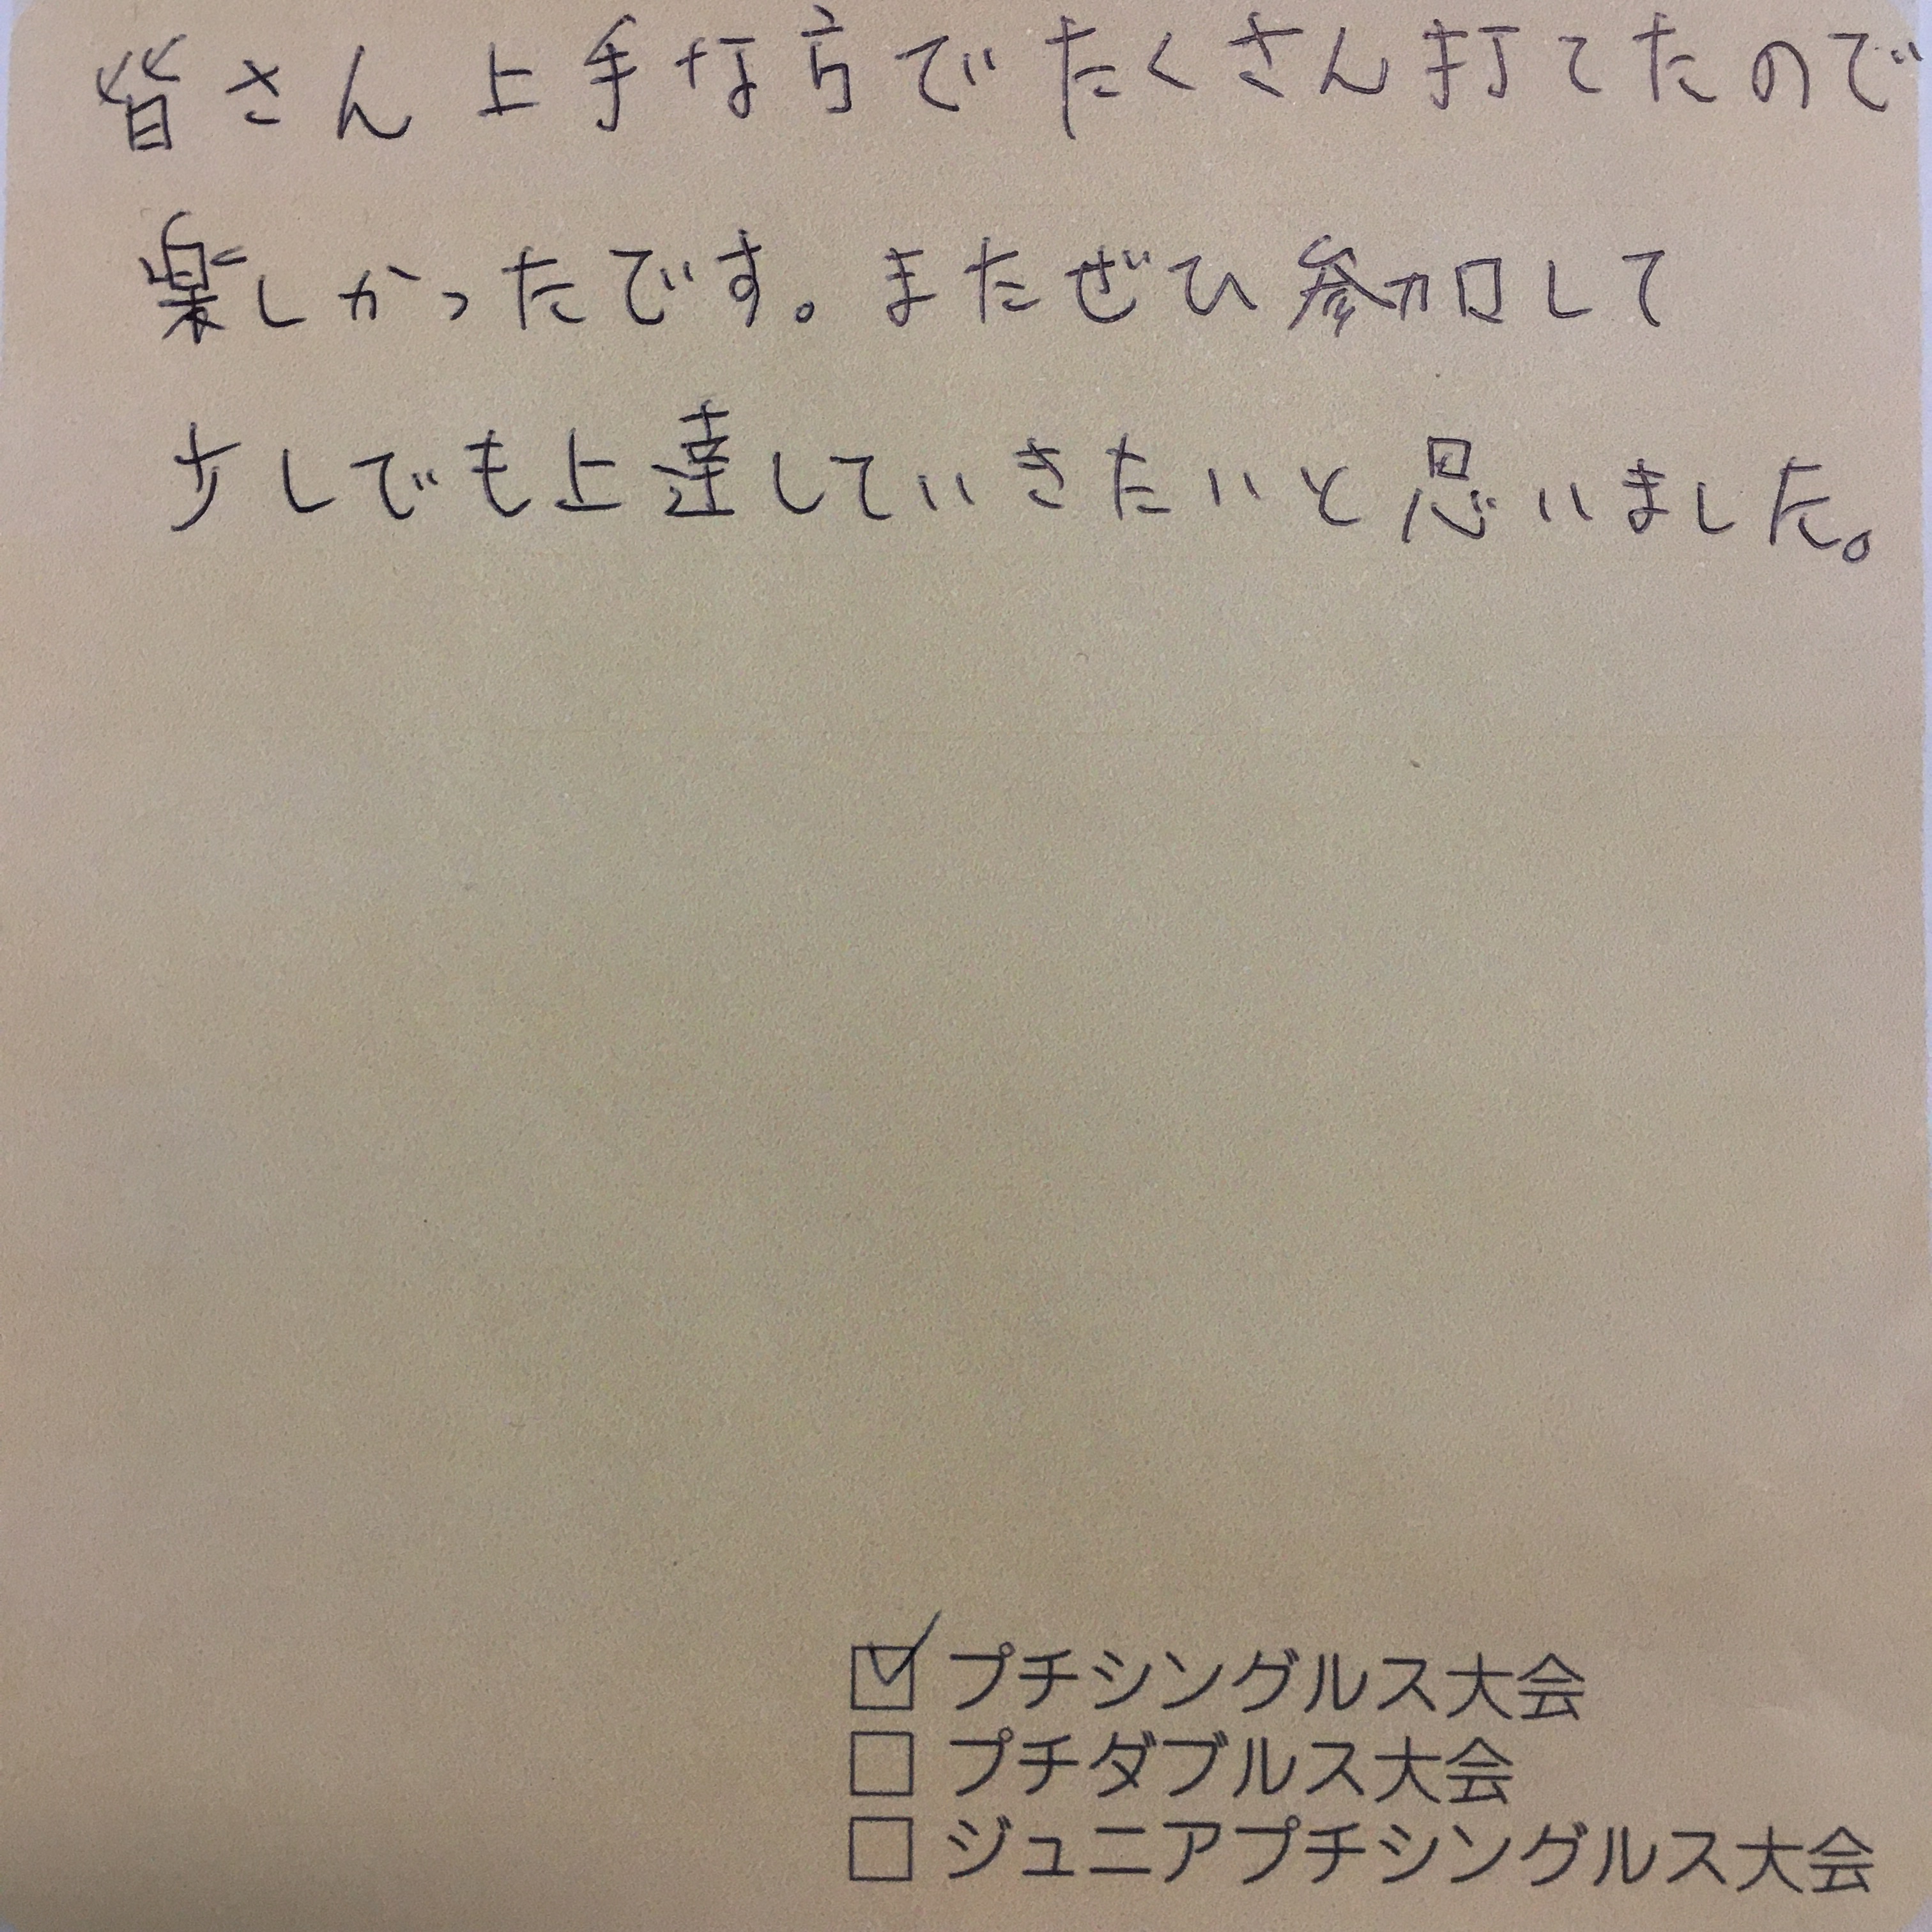 皆さん上手な方でたくさん打てたので
楽しかったです。またぜひ参加して
少しでも上達していきたいと思いました。
☑プチシングルス大会
□プチダブルス大会
□ジュニアプチシングルス大会